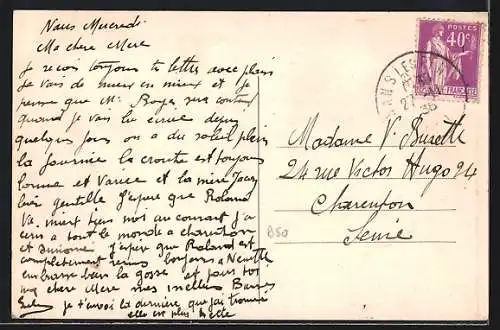 Mercredi
Ma chere Mere
Je recois toujours ta lettre avec plaisir
Je vais de mieux en mieux et je
pense que Mr sera content
quand je vais lui ecrire depuis
quelques jours on a du soleil plein
la journée la croute est toujours
bonne et variée et la mère
bien gentille J'espere que Roland
va mieux tiens moi au courant j'ai
ecris a tout le monde a charenton
et J'espere que Roland est
completement remis bonjour a Neuville
embrasse bien la gosse et pour toi
ma chere Mere mes meilleurs Baisers
je t'envoi la dernière que j'ai trouvée
elle est plus belle
POSTES
40c
Madame V.
24 rue Victor Hugo 24
Charenton
Seine
B50